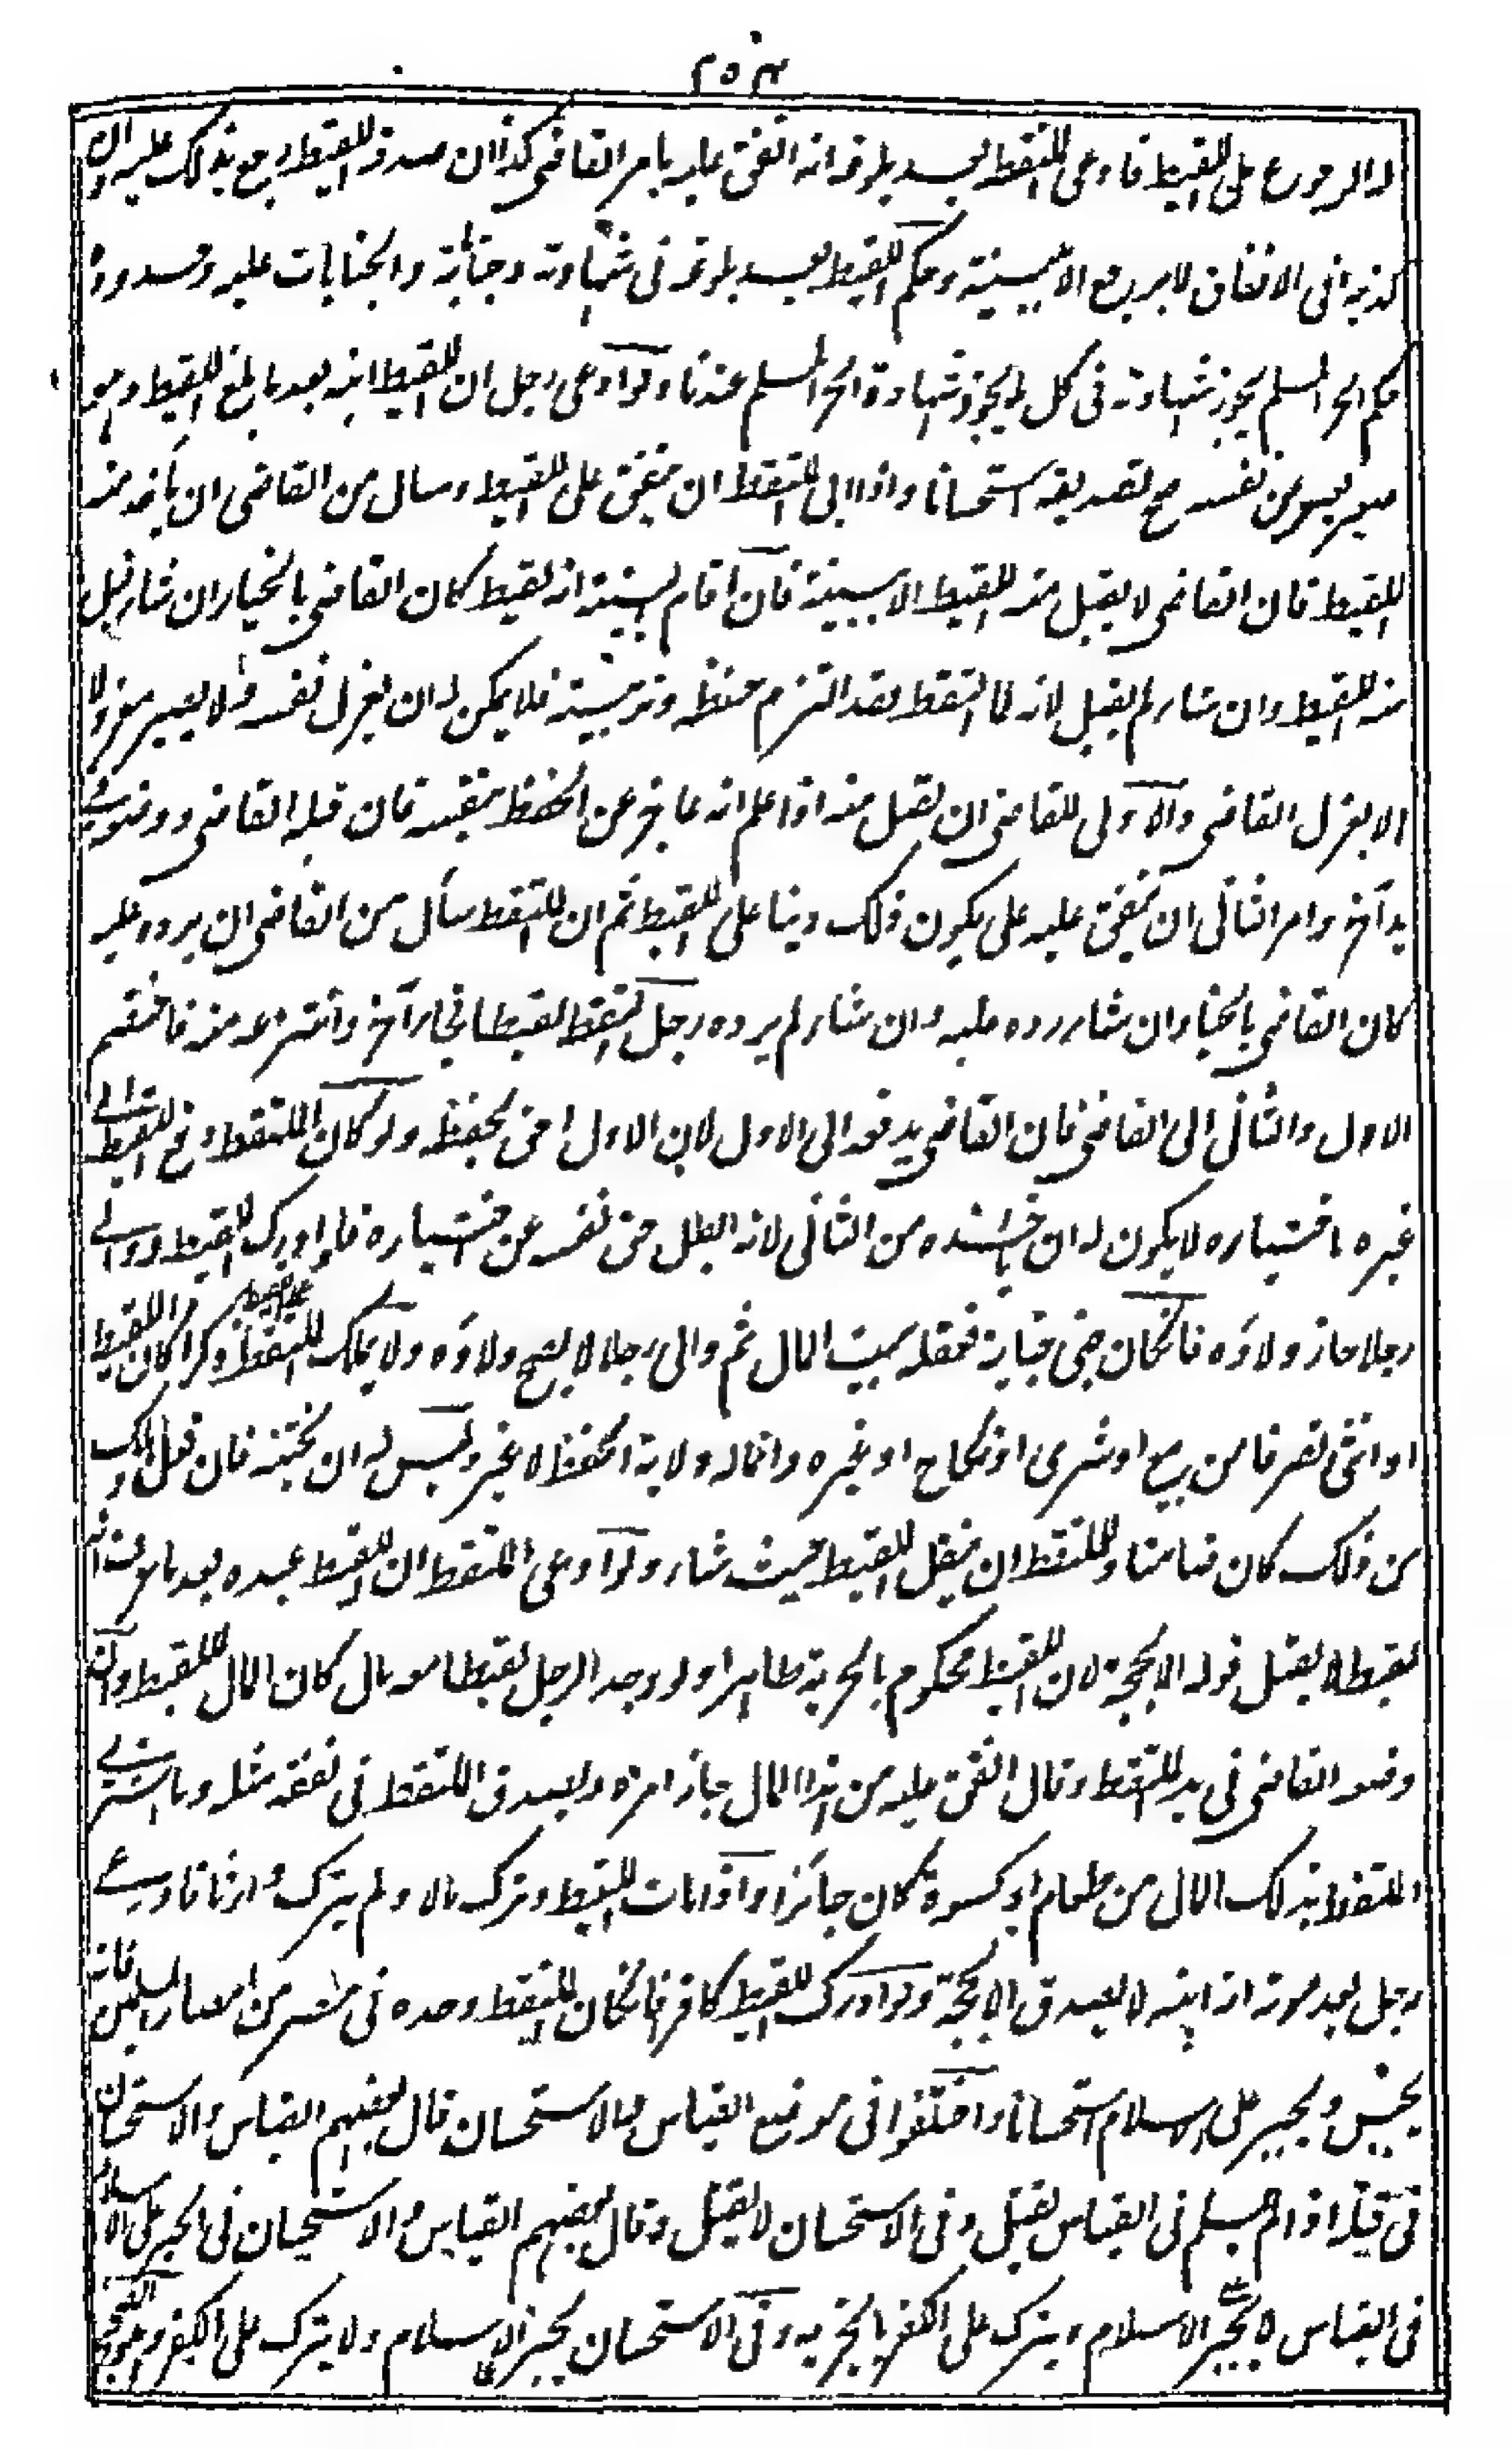 ٢٥٣
له الرجوع على اللقيط فادعى الملتقط بعد بلوغه انه انفق عليه بامر القاضى كذا ان صدقه اللقيط رجع بذلك عليه وان
كذبه فى الانفاق لا يرجع الا ببينة وحكم اللقيط بعد بلوغه فى شهادته وجنايته والجنايات عليه وحدوده
حكم الحر المسلم يجوز شهادته فى كل ما يجوز شهادة الحر المسلم عندنا ولو ادعى رجل ان اللقيط ابنه بعد ما بلغ اللقيط وهو
ممن يعبر عن نفسه صح تصديقه استحسانا واذا ابى الملتقط ان ينفق على اللقيط وسال من القاضى ان يأخذ منه
اللقيط فان القاضى لا يقبل منه اللقيط الا ببينة فان اقام البينة انه لقيط كان القاضى بالخيار ان شاء قبل
منه اللقيط وان شاء لم يقبل لانه لما التقط فقد التزم حفظه وتربيته فلا يمكن له ان يعزل نفسه ولا يصير معزولا
الا بعزل القاضى والاولى للقاضى ان يقبل منه اذا علم انه عاجز عن الحفظ بنفسه فان قبله القاضى ووضعه فى
يد آخر وامر الثانى ان ينفق عليه على يكون ذلك دينا على اللقيط ثم ان الملتقط سأل من القاضى ان يرده عليه
كان القاضى بالخيار ان شاء رده عليه وان شاء لم يرده رجل التقط لقيطا فجاء آخر وانتزعه منه فاختصم
الاول والثانى الى القاضى فان القاضى يدفعه الى الاول لان الاول احق بحفظه ولو كان الملتقط دفع اللقيط الى
غيره باختياره لا يكون له ان يأخذه من الثانى لانه ابطل حق نفسه عن اختياره فلو ادرك اللقيط ووالى
رجلا جاز ولاؤه فان كان جنى جناية فعقله بيت المال ثم والى رجلا لا يصح ولاؤه ولا يملك الملتقط على اللقيط ذكرا كان اللقيط
او انثى تصرفا من بيع او شرى او نكاح او غيره وانما له ولاية الحفظ لا غير وليس له ان يختنه فان فعل ذلك
من ذلك كان ضامنا وللملتقط ان ينقل اللقيط حيث شاء ولو ادعى الملتقط ان اللقيط عبده بعد ما عرف انه
لقيط لا يقبل قوله الا بحجة لان اللقيط محكوم بالحرية ظاهرا ولو وجد الرجل لقيطا معه مال كان المال للقيط وان
وضعه القاضى فى يد الملتقط وقال انفق عليه من هذا المال جاز امره ويصدق الملتقط فى نفقة مثله وما اشترى
الملتقط بذلك المال من طعام او كسوة كان جائزا واذا مات اللقيط وترك مالا ولم يترك وارثا فادعى
رجل بعد موته انه ابنه لا يصدق الا بحجة ولو ادرك اللقيط كافرا فان كان الملتقط وجده فى مصر من امصار المسلمين فانه
يحبس ويجبر على الاسلام استحسانا واختلفوا فى موضع القياس والاستحسان قال بعضهم القياس والاستحسان
فى قتله اذا لم يسلم فى القياس يقتل وفى الاستحسان لا يقتل وقال بعضهم القياس والاستحسان فى الجبر على الاسلام
فى القياس لا يجبر على الاسلام ويترك على الكفر بالجزية وفى الاستحسان يجبر على الاسلام ولا يترك على الكفر وهو الصحيح